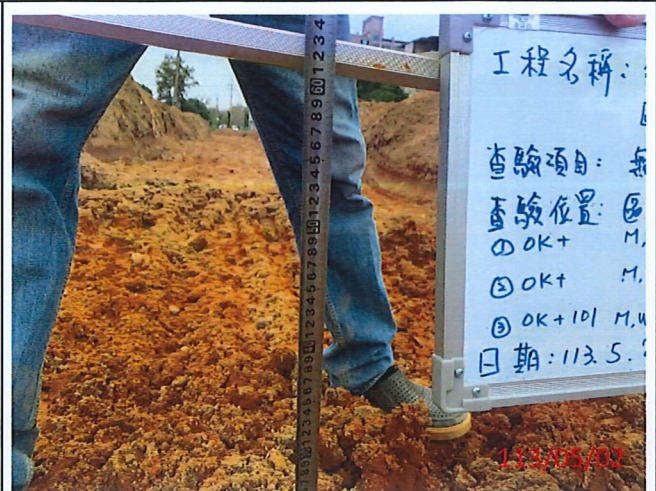 工程名稱:
查驗項目:
查驗位置: 區
① OK+ M,
② OK+ M,
③ OK+101 M,W
日期:113.5.2
113/05/02